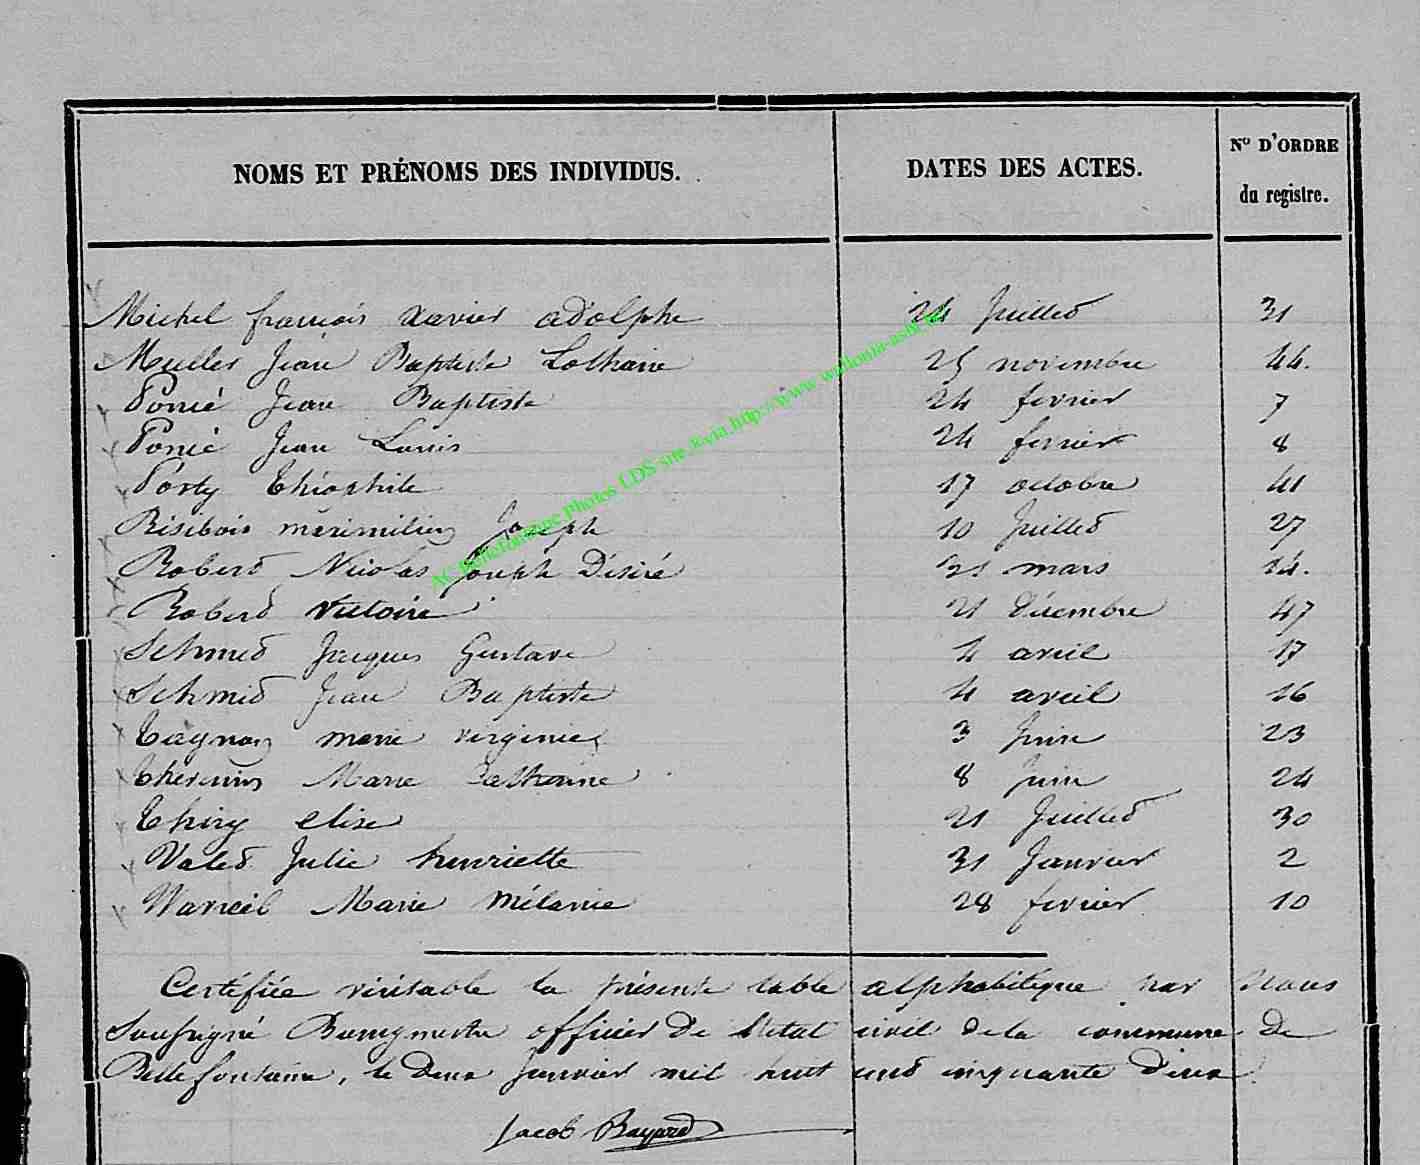 NOMS ET PRÉNOMS DES INDIVIDUS. DATES DES ACTES. N° D'ORDRE du registre.
Michel françois xavier adolphe 24 Juillet 31
Muller Jean Baptiste Lothaire 25 novembre 44.
Poncé Jean Baptiste 24 fevrier 7
Poncé Jean Louis 24 fevrier 8
Posty théophile 17 octobre 41
Risebois meximilien Joseph 10 Juillet 27
Robert Nicolas Joseph Désiré 31 mars 14.
Robert Victoire 21 décembre 47
Schmid Jacques Gustave 4 avril 17
Schmid Jean Baptiste 4 avril 16
marie virginie 3 Juin 23
Marie Catherine 8 Juin 24
Thiry elise 21 Juillet 30
Valet Julie henriette 31 Janvier 2
Marie mélanie 28 fevrier 10
Certifiée véritable la présente table alphabétique par Nous
Soussigné Bourgmestre officier de l'état civil de la commune de
Bellefontaine, le deux Janvier mil huit cent cinquante deux.
Jacob Bayard
AC Bellefontaine Photos LDS via http://www.wallonia-asbl.be